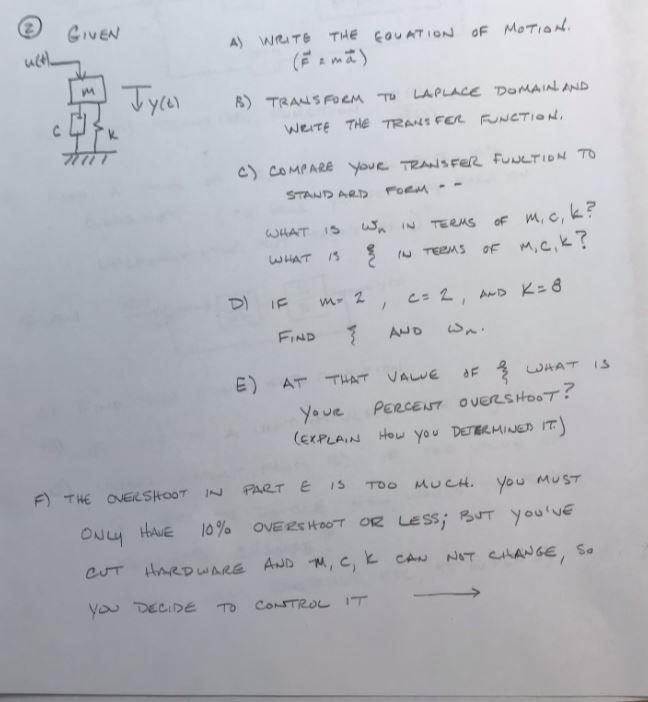 ② GIVEN
u(t)
m
y(t)
c
k
A) WRITE THE EQUATION OF MOTION.
(F⃗ = ma⃗)
B) TRANSFORM TO LAPLACE DOMAIN AND
WRITE THE TRANSFER FUNCTION.
C) COMPARE YOUR TRANSFER FUNCTION TO
STANDARD FORM - -
WHAT IS ωn IN TERMS OF m, c, k?
WHAT IS ξ IN TERMS OF m, c, k?
D) IF m = 2, c = 2, AND K = 8
FIND ξ AND ωn.
E) AT THAT VALUE OF ξ WHAT IS
YOUR PERCENT OVERSHOOT?
(EXPLAIN HOW YOU DETERMINED IT.)
F) THE OVERSHOOT IN PART E IS TOO MUCH. YOU MUST
ONLY HAVE 10% OVERSHOOT OR LESS; BUT YOU'VE
CUT HARDWARE AND M, C, K CAN NOT CHANGE, SO
YOU DECIDE TO CONTROL IT →